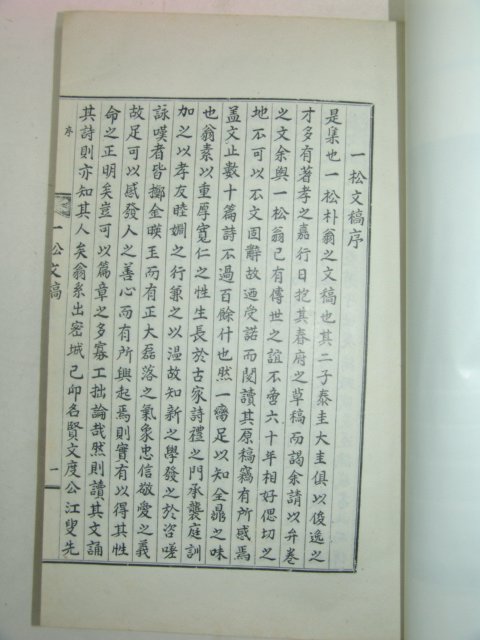 一松文稿序
是集也一松朴翁之文稿也其二子泰圭大圭俱以俊逸之
才多有著孝之嘉行日抱其春府之草稿而謁余請以弁卷
之文余與一松翁已有傳世之誼不啻六十年相好偲切之
地不可以不文固辭故迺受諾而閱讀其原稿竊有所感焉
盖文止數十篇詩不過百餘什也然一臠足以知全鼎之味
也翁素以重厚寬仁之性生長於古家詩禮之門承襲庭訓
加之以孝友睦婣之行兼之以温故知新之學發之於咨嗟
詠嘆者皆擲金暎玉而有正大磊落之氣象忠信敬愛之義
故足可以感發人之善心而有所興起焉則實有以得其性
命之正明矣豈可以篇章之多寡工拙論哉然則讀其文誦
其詩則亦知其人矣翁系出密城己卯名賢文度公江叟先
序
一松文稿
一